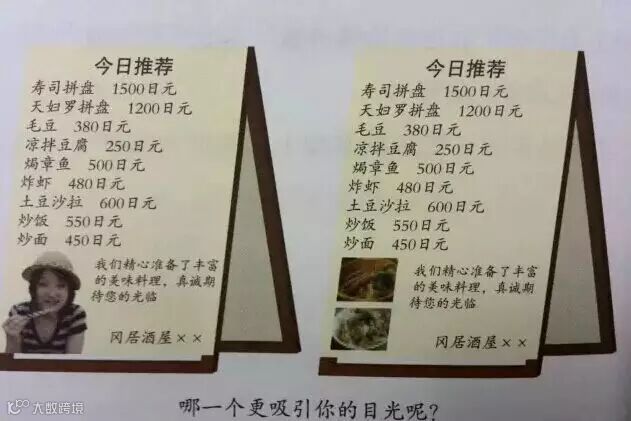 今日推荐
寿司拼盘 1500日元
天妇罗拼盘 1200日元
毛豆 380日元
凉拌豆腐 250日元
焗章鱼 500日元
炸虾 480日元
土豆沙拉 600日元
炒饭 550日元
炒面 450日元
我们精心准备了丰富
的美味料理，真诚期
待您的光临
冈居酒屋××
今日推荐
寿司拼盘 1500日元
天妇罗拼盘 1200日元
毛豆 380日元
凉拌豆腐 250日元
焗章鱼 500日元
炸虾 480日元
土豆沙拉 600日元
炒饭 550日元
炒面 450日元
我们精心准备了丰富
的美味料理，真诚期
待您的光临
冈居酒屋××
哪一个更吸引你的目光呢？
大数跨境